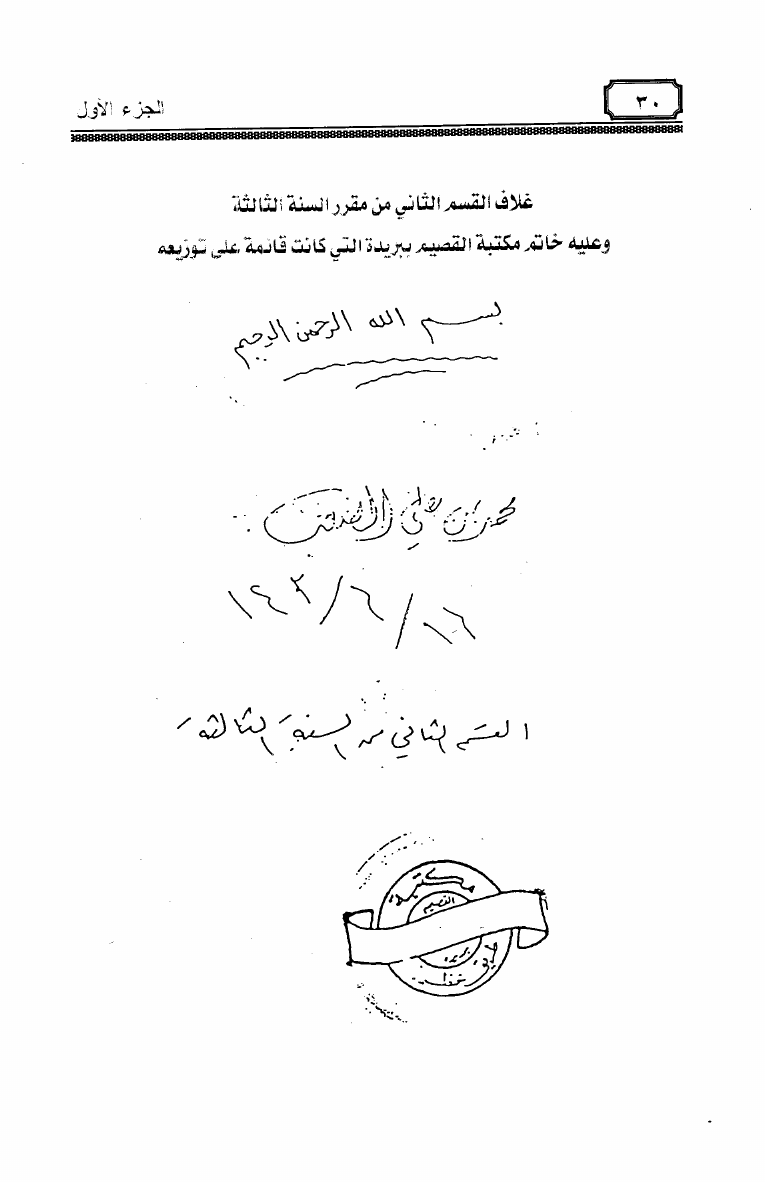 ٣٠
الجزء الأول
غلاف القسم الثاني من مقرر السنة الثالثة
وعليه خاتم مكتبة القصيم ببريدة التي كانت قائمة على توزيعه
بسم الله الرحمن الرحيم
محمد بن علي
١٤٠٢/٦/١٦
القسم الثاني من السنة الثالثة
مكتبة
القصيم
بريدة